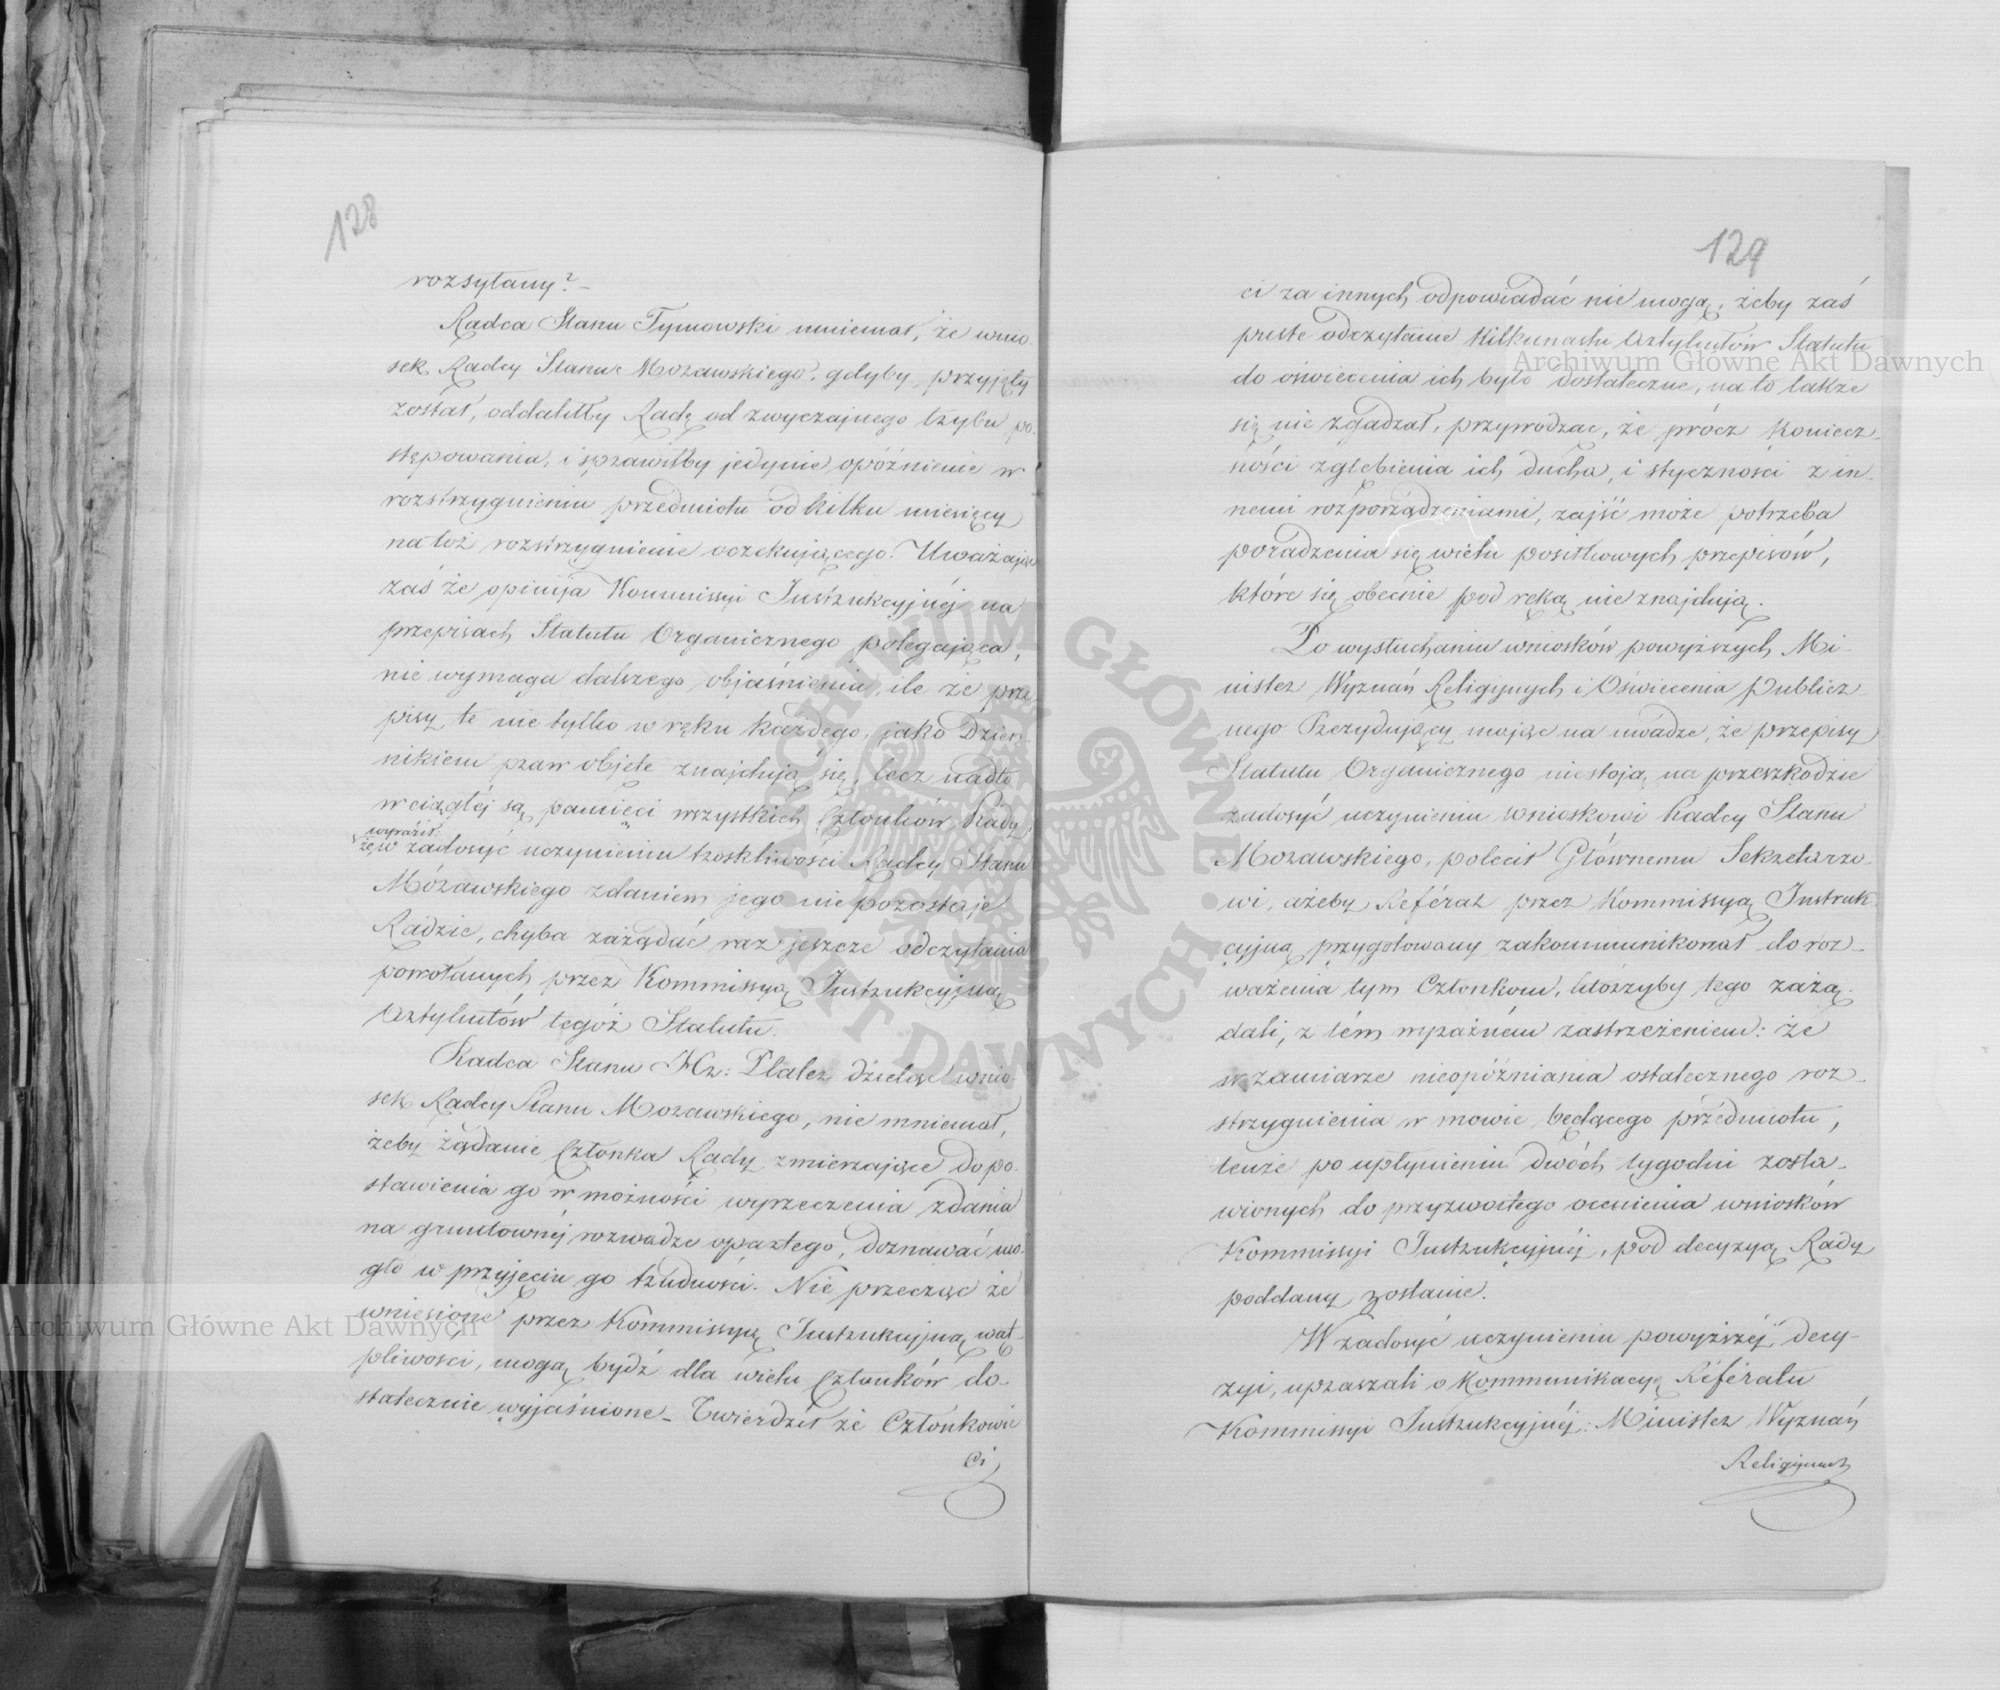 128
rozsyłany? –
Radca Stanu Tymowski mniemał, że wnio
sek Radcy Stanu Morawskiego, gdyby przyjęty
został, oddaliłby Radę od zwyczajnego trybu po-
stępowania, i sprawiłby jedynie opóźnienie w
rozstrzygnieniu przedmiotu od kilku miesięcy
na toż rozstrzygnienie oczekującego. Uważając
zaś że opinija Kommissyi Instrukcyjnéj na
przepisach Statutu Organicznego polegająca,
nie wymaga dalszego objaśnienia, ile że prze
pisy te nie tylko w ręku każdego, jako Dzien-
nikiem praw objęte znajdują się, lecz nadto
w ciągłéj są pamięci wszystkich Członków Rady,
wyraził:
że w zadosyć uczynieniu troskliwości Radcy Stanu
Morawskiego zdaniem jego nie pozostaje
Radzie, chyba zażądać raz jeszcze odczytania
powołanych przez Kommissyą Instrukcyjną
Artykułów tegóż Statutu.
Radca Stanu Hr: Plater dzieląc wnio
sek Radcy Stanu Morawskiego, nie mniemał,
żeby żądanie Członka Rady zmierzające do po-
stawienia go w możności wyrzeczenia zdania
na gruntownéj rozwadze opartego, doznawać mo-
gło w przyjęciu go trudności. Nie przecząc że
wniesione przez Kommissyą Instrukcyjną wąt-
pliwości, mogą bydź dla wielu Członków do-
statecznie wyjaśnione – Twierdził że Członkowie
Ci
129
ci za innych odpowiadać nie mogą, żeby zaś
proste odczytanie kilkunastu Artykułów Statutu
do oświecenia ich było dostateczne, na to także
się nie zgadzał, przywodząc, że prócz koniecz-
ności zgłębienia ich ducha, i styczności z in-
nemi rozporządzeniami, zajść może potrzeba
poradzenia się wielu posiłkowych przepisów,
które się obecnie pod ręką nie znajdują.
Po wysłuchaniu wniosków powyższych Mi-
nister Wyznań Religijnych i Oświecenia Publicz-
nego Prezydujący mając na uwadze, że przepisy
Statutu Organicznego nie stoją na przeszkodzie
zadosyć uczynieniu wnioskowi Radcy Stanu
Morawskiego, polecił Głównemu Sekretarzo-
wi, ażeby Referat przez Kommissyą Instruk-
cyjną przygotowany zakommunikował do roz-
ważenia tym Członkom, którzyby tego zażą-
dali, z tém wyraźném zastrzeżeniem: że
w zamiarze nieopóźniania ostatecznego roz-
strzygnienia w mowie będącego przedmiotu,
tenże po upłynieniu dwóch tygodni zosta-
wionych do przyzwoitego ocenienia wniosków
Kommissyi Instrukcyjnéj, pod decyzyą Rady
poddany zostanie.
W zadosyć uczynieniu powyższéj decy-
zyi, upraszali o kommunikacyą Referatu
Kommissyi Instrukcyjnéj: Minister Wyznań
Religijnych
Archiwum Główne Akt Dawnych
Archiwum Główne Akt Dawnych
ARCHIWUM GŁÓWNE · AKT DAWNYCH ·